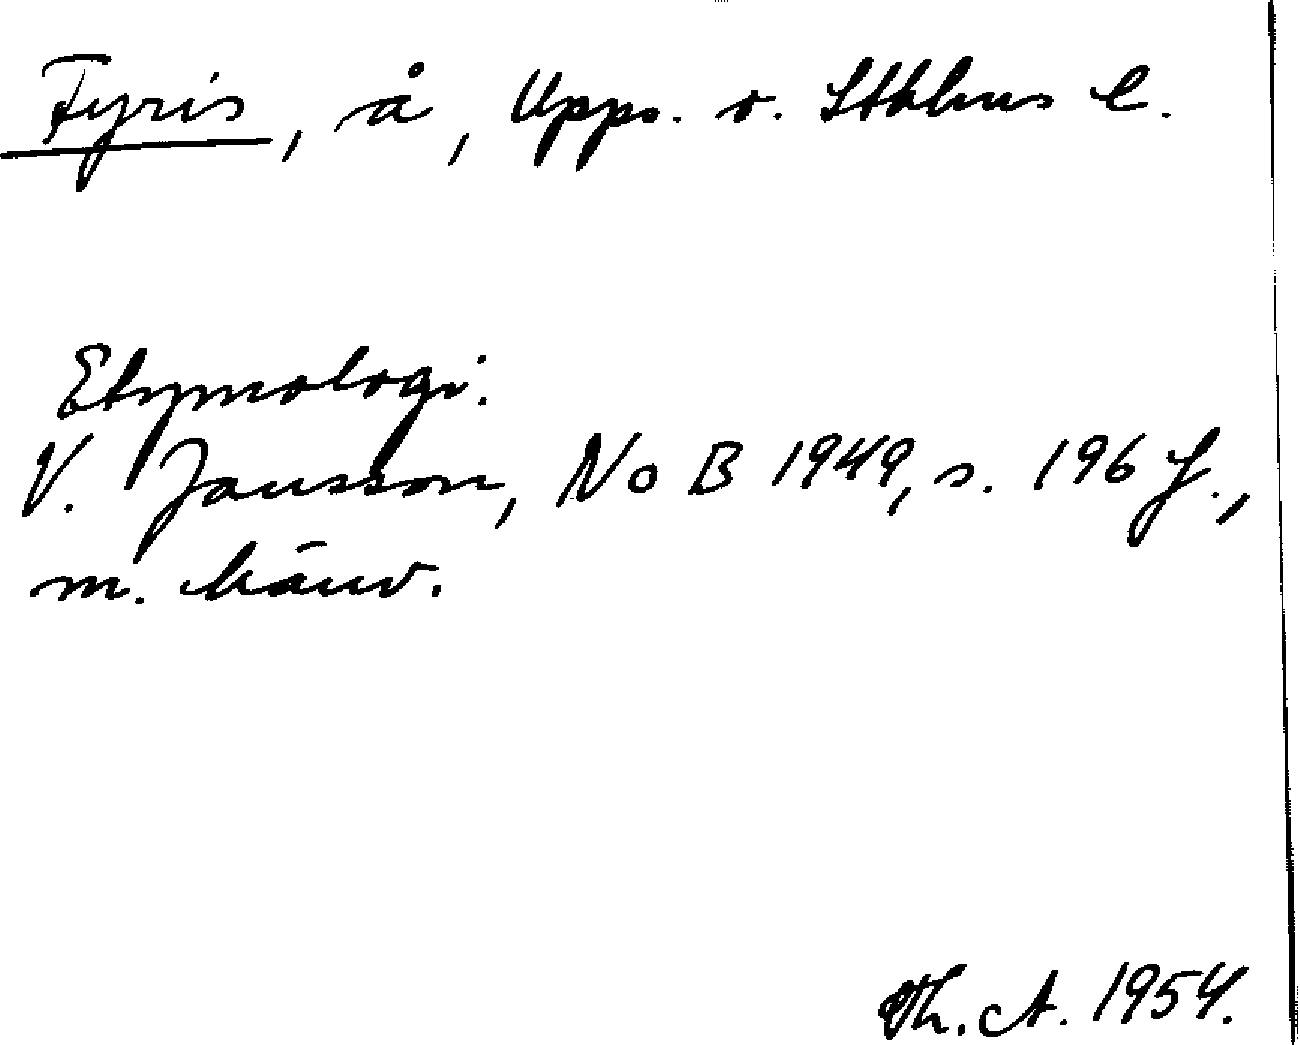 Fyris, å, Upps. o. Sthlms l.
Etymologi.
V. Jansson, No B 1949, s. 196 f.,
m. hänv.
Th. A. 1954.